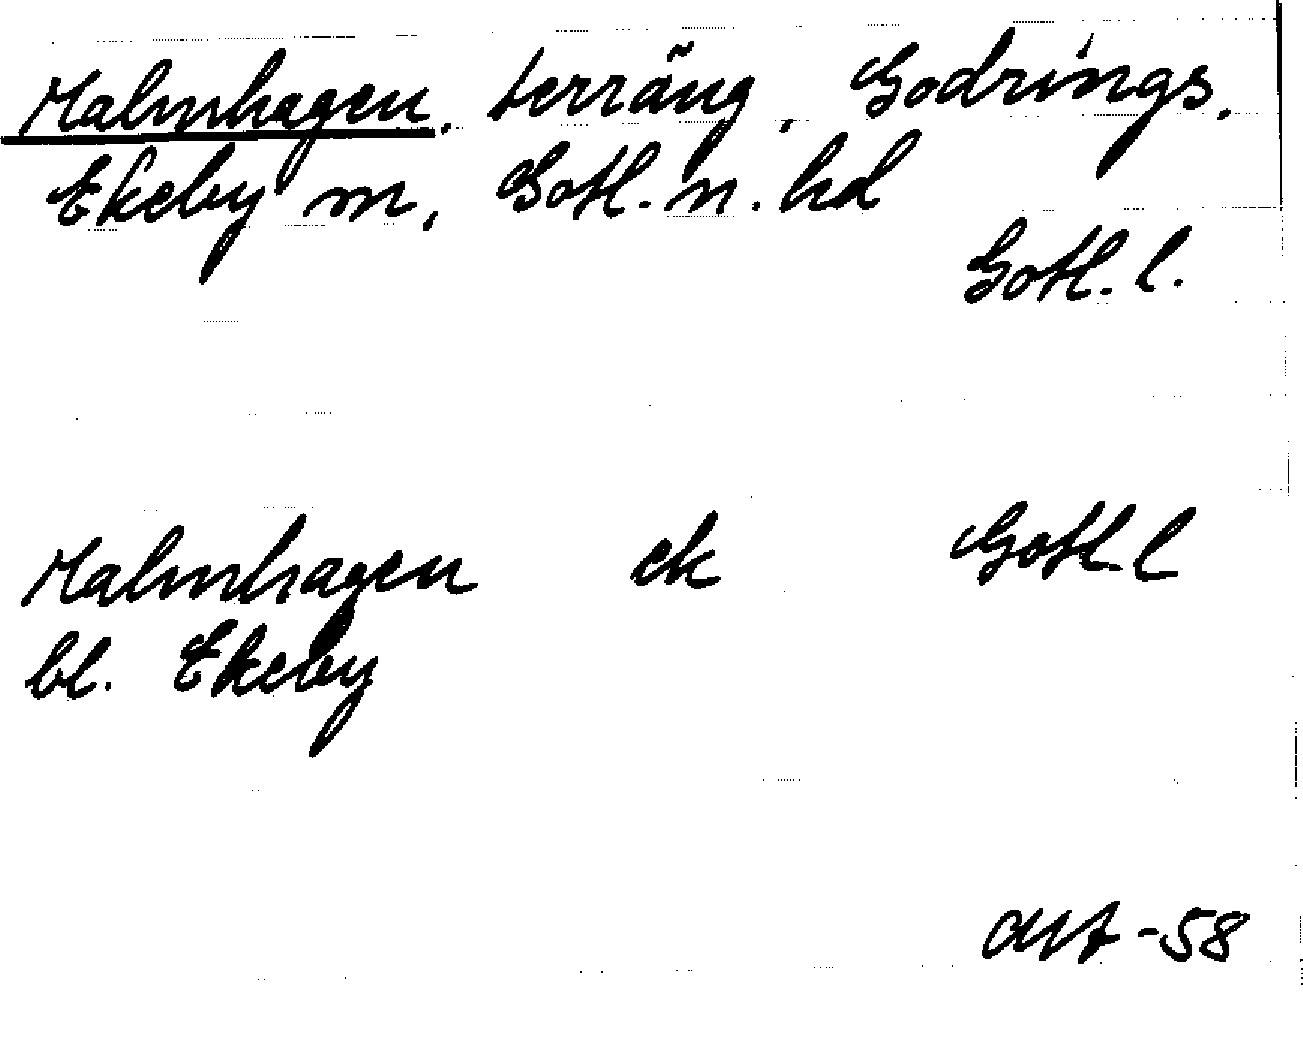 Malmhagen, terräng, Godrings,
Ekeby sn, Gotl. n. hd
Gotl. l.
Malmhagen ek Gotl. l
bl. Ekeby
-58